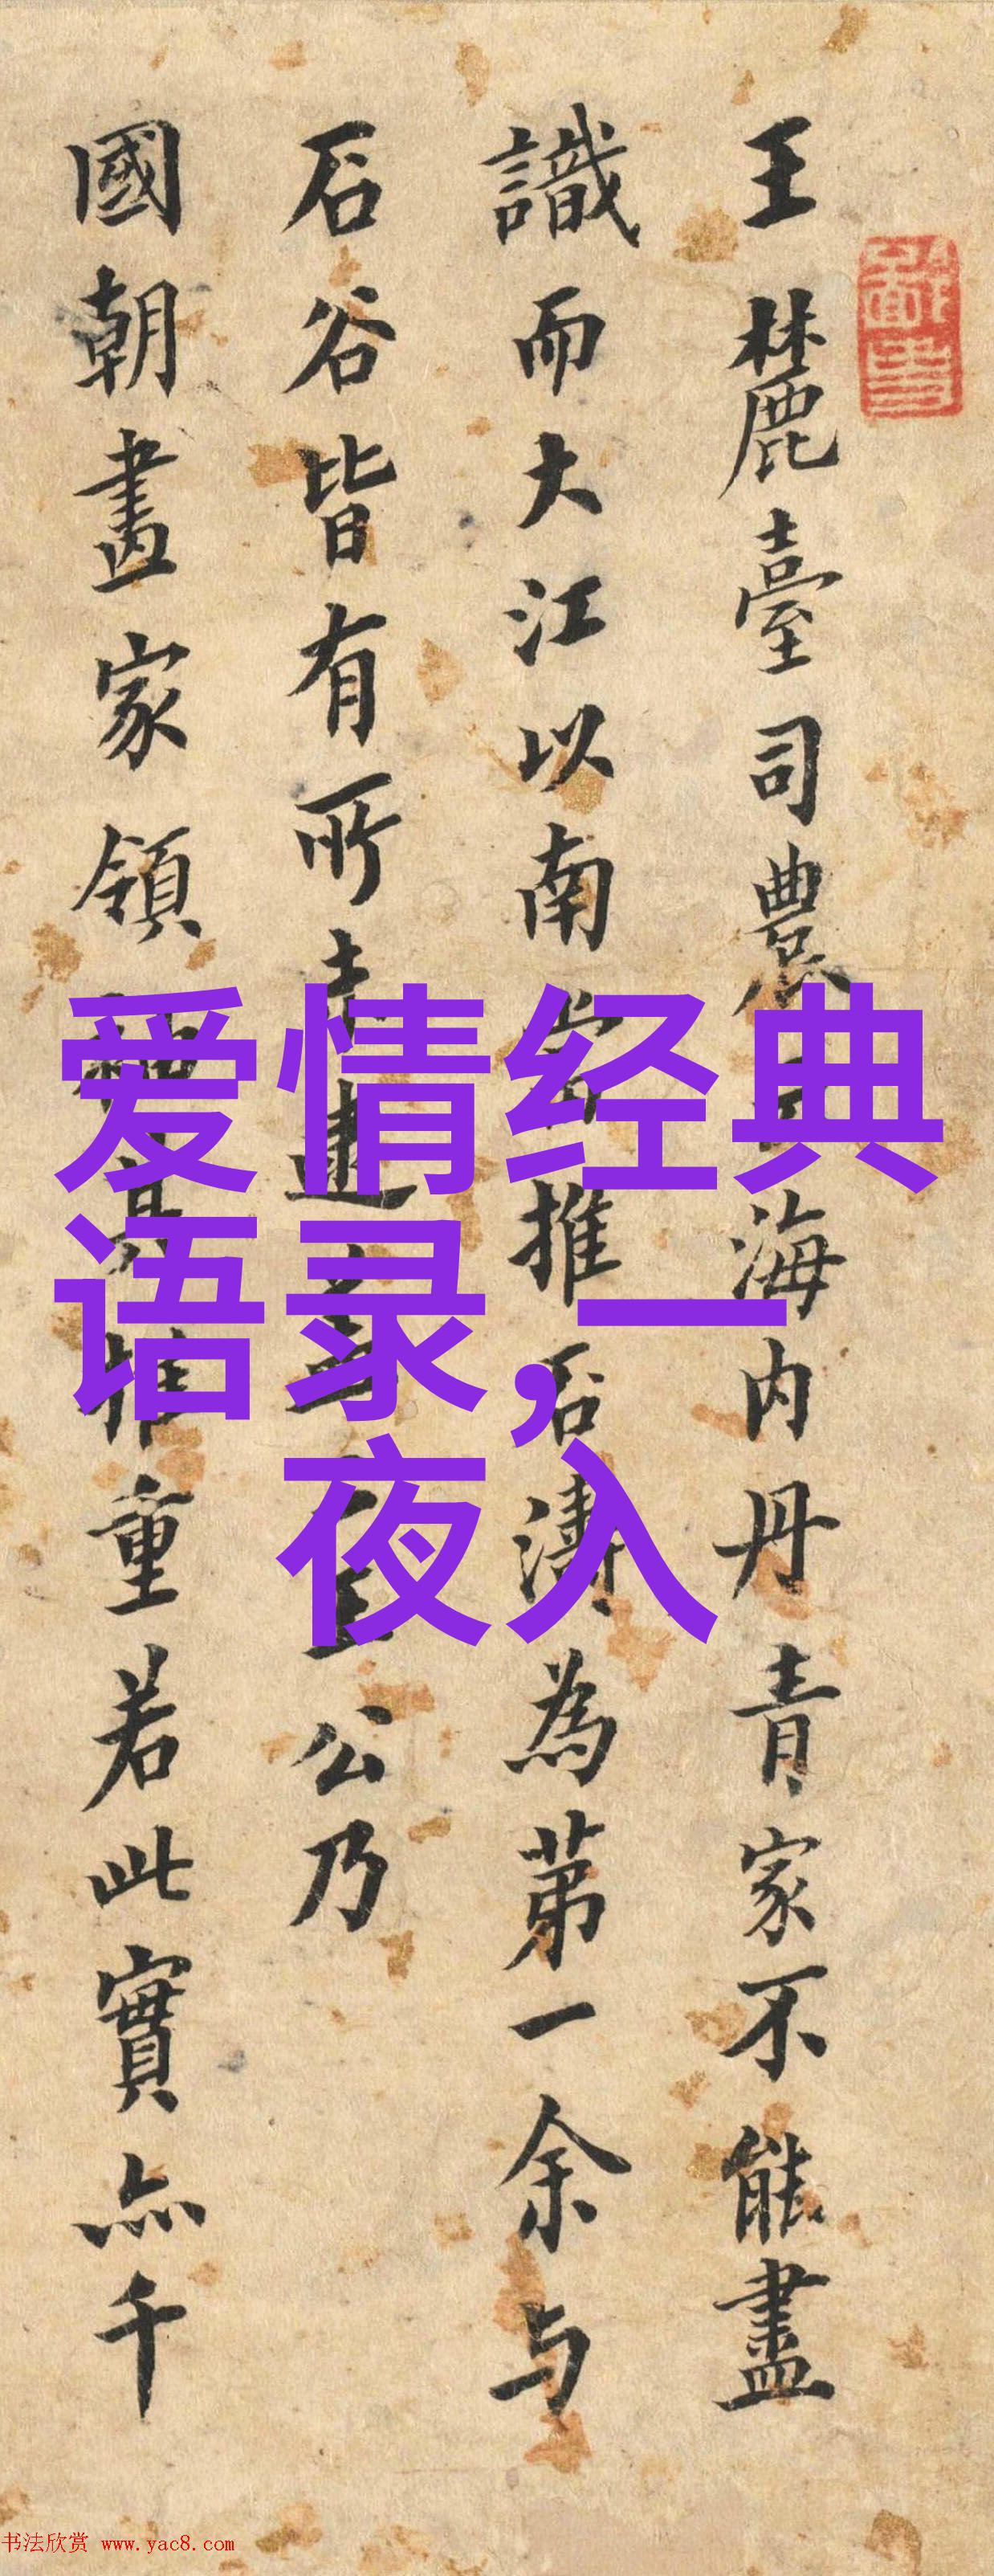 王麓臺司農云海内丹青家不能盡
識而大江以南當推石濤為第一余与
石谷皆有所未逮
公乃
國朝畫家領
推重若此實亦千
爱情经典
语录,一
夜入
书法欣赏 www.yac8.com